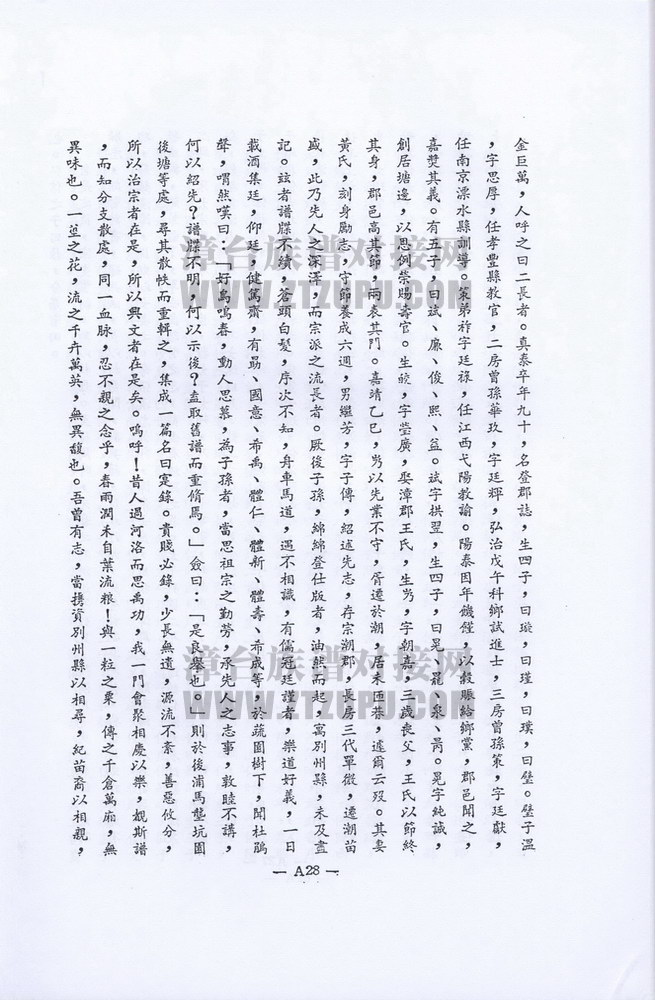 金巨萬，人呼之曰二長者。真泰卒年九十，名登郡誌，生四子，曰璇，曰瑾，曰璞，曰璧。璧子溫
，字思厚，任孝豐縣教官，二房曾孫華玖，字廷輝，弘治戊午科鄉試進士，三房曾孫策，字廷獻，
任南京溧水縣訓導。策弟祚字廷祿，任江西弋陽教諭。陽泰因年饑饉，以穀賑給鄉黨，郡邑聞之，
嘉獎其義。有五子，曰斌、廉、俊、熙、益。斌字拱翌，生四子，曰晃、罷、衆、昺。晃字純誠，
創居塘邊，以恩例榮賜壽官。生皎，字瑩廣，娶漳郡王氏，生岃，字朝嘉，三歲喪父，王氏以節終
其身，郡邑高其節，兩表其門。嘉靖乙巳，岃以先業不守，胥遷於潮，居未匝巷，遽爾云歿。其妻
黃氏，刻身勵志，守節養成六週，男繼芳，字子傳，紹述先志，存宗潮郡，長房三代單微，遷潮苗
盛，此乃先人之深澤，而宗派之流長者。厥後子孫，綿綿登仕版者，油然而起，寓別州縣，未及盡
記。玆者譜牒不續，蒼頭白髮，序次不知，舟車馬道，遇不相識，有儒冠廷謹者，樂道好義，一日
載酒集廷，仰廷，健篤齋，有勗、國意、希禹、體仁、體新、體壽、希成等，於疏園樹下，聞杜鵑
聲，喟然嘆曰，「好鳥鳴春，動人思慕，為子孫者，當思祖宗之勤勞，承先人之志事，敦睦不講，
何以紹先？譜牒不明，何以示後？盍取舊譜而重脩焉。」僉曰：「是良舉也。」則於後浦馬壟坑園
後塘等處，尋其散帙而重輯之，集成一篇名曰寔錄。貴賤必錄，少長無遺，源流不紊，善惡攸分，
所以治宗者在是，所以興文者在是矣。嗚呼！昔人過河洛而思禹功，我一門會聚相慶以樂，覩斯譜
，而知分支散處，同一血脉，忍不親之念乎，春雨潤禾自葉流粮！與一粒之粟，傳之千倉萬廂，無
異味也。一莖之花，流之千卉萬英，無異馥也。吾曾有志，當携資別州縣以相尋，紀苗裔以相親，
— A28 —
漳台族谱对接网
WWW.ZTZUPU.COM
漳台族谱对接网
WWW.ZTZUPU.COM